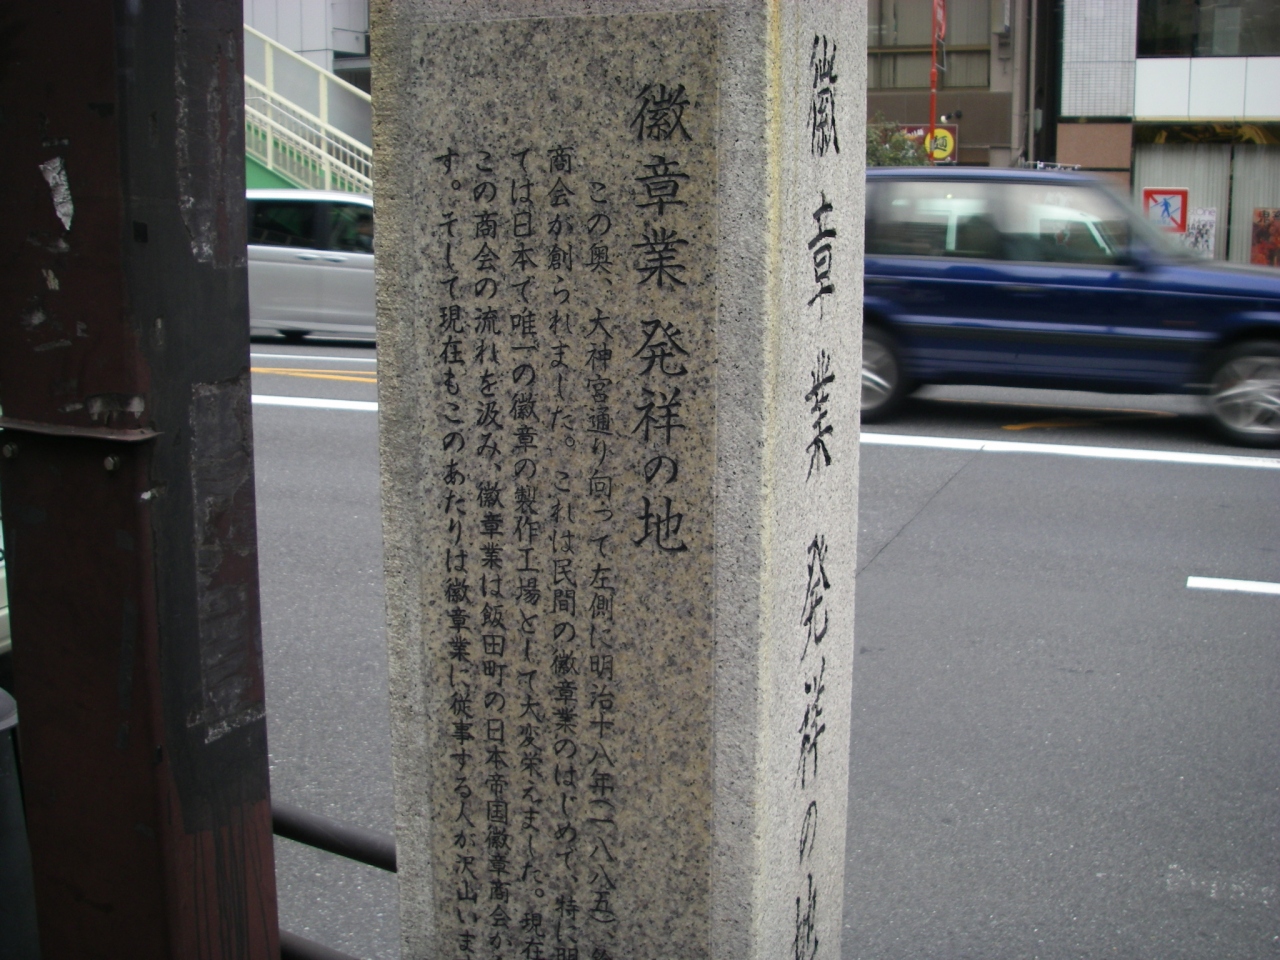 徽章業発祥の地
徽章業 発祥の地
この奥、大神宮通り向って左側に明治十八年(一八八五)、
商会が創られました。これは民間の徽章業のはじめで、特に明
ては日本で唯一の徽章の製作工場として大変栄えました。現在
この商会の流れを汲み、徽章業は飯田町の日本帝国徽章商会が
す。そして現在もこのあたりは徽章業に従事する人が沢山いま
麺